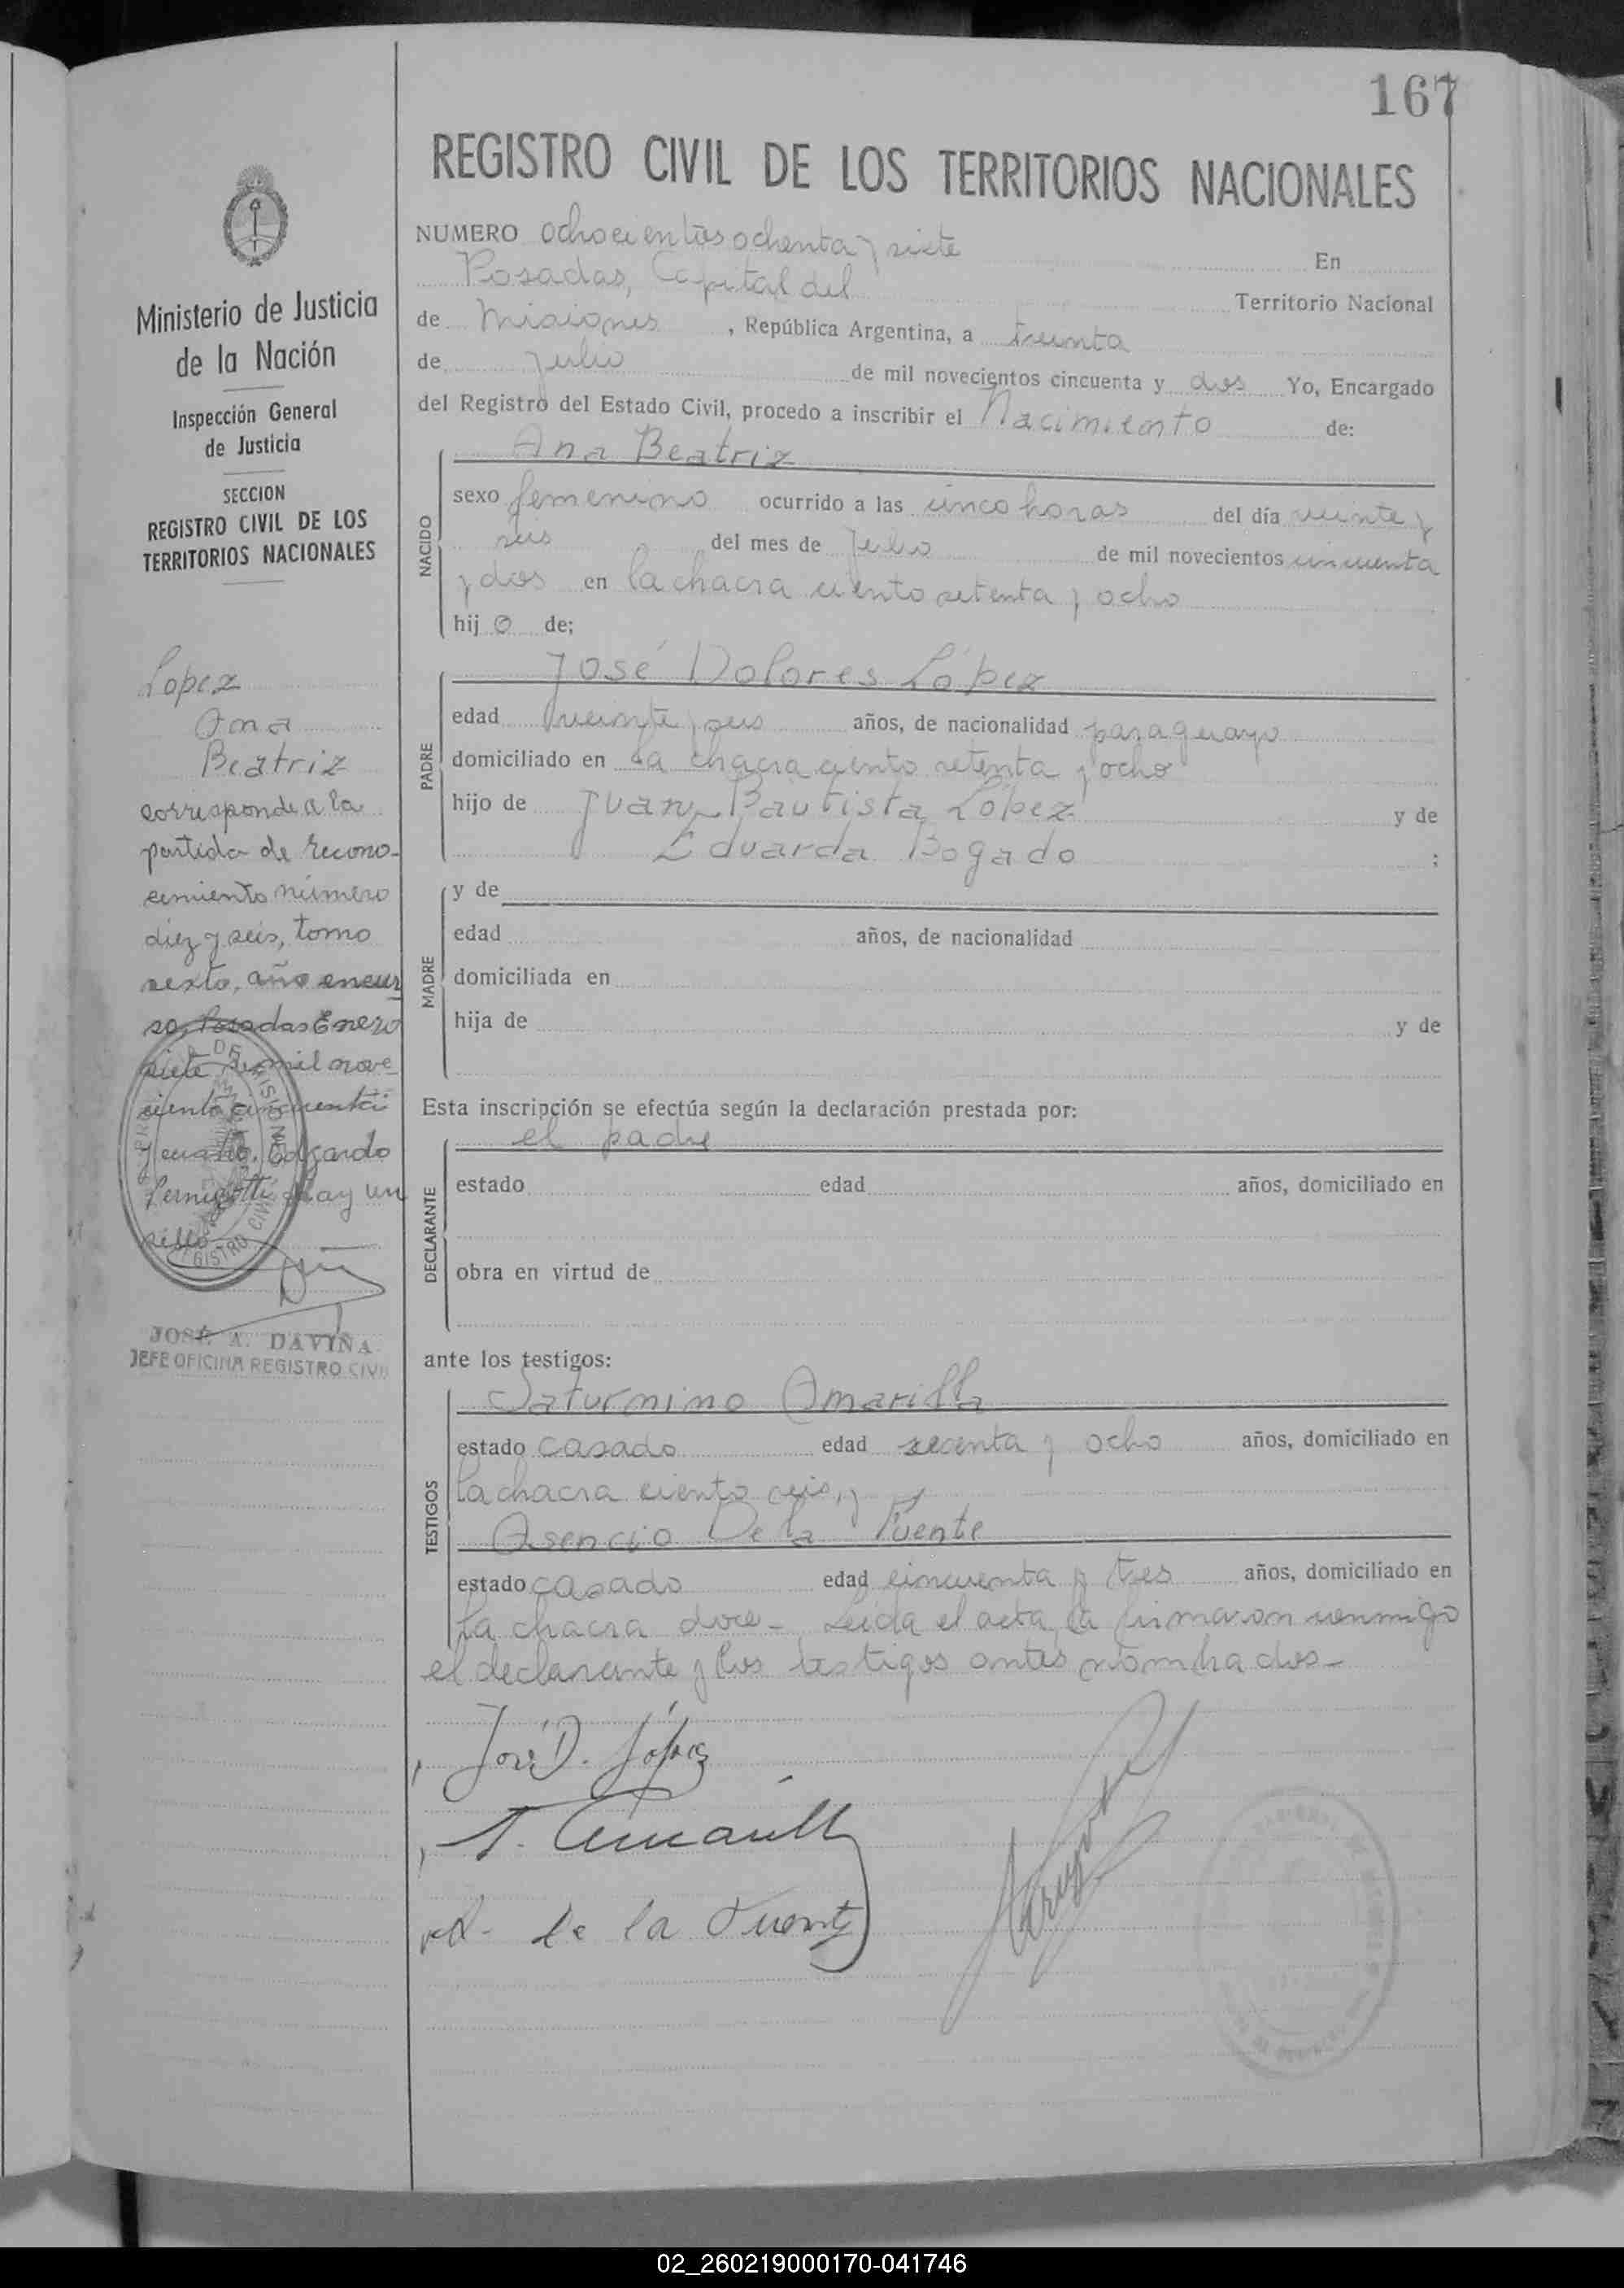 167
REGISTRO CIVIL DE LOS TERRITORIOS NACIONALES
NUMERO ochocientos ochenta y siete En
Posadas, Capital del Territorio Nacional
de Misiones, República Argentina, a treinta
de julio de mil novecientos cincuenta y dos Yo, Encargado
del Registro del Estado Civil, procedo a inscribir el Nacimiento de:
NACIDO
Ana Beatriz
sexo femenino ocurrido a las cinco horas del día veinte y
seis del mes de Julio de mil novecientos cincuenta
y dos en la chacra ciento setenta y ocho
hij de;
PADRE
José Dolores López
edad veinte y seis años, de nacionalidad paraguayo
domiciliado en la chacra ciento setenta y ocho
hijo de Juan Bautista López y de
Eduarda Bogado ;
MADRE
y de
edad años, de nacionalidad
domiciliada en
hija de y de
Esta inscripción se efectúa según la declaración prestada por:
DECLARANTE
el padre
estado edad años, domiciliado en
obra en virtud de
ante los testigos:
TESTIGOS
Saturnino Amarilla
estado casado edad sesenta y ocho años, domiciliado en
la chacra ciento seis, y
Asencio De la Fuente
estado casado edad cincuenta y tres años, domiciliado en
la chacra doce - Leída el acta, la firmaron conmigo
el declarante y los testigos antes nombrados -
José D. López
S. Amarilla
A. de la Fuente
Ministerio de Justicia
de la Nación
Inspección General
de Justicia
SECCION
REGISTRO CIVIL DE LOS
TERRITORIOS NACIONALES
Lopez
Ana
Beatriz
corresponde a la
partida de recono-
cimiento número
diez y seis, tomo
sexto, año en cur
so, Posadas Enero
siete de mil nove
cientos cincuenta
y cuatro. Edgardo
Pernigotti Hay un
sello
JOSE A. DAVIÑA
JEFE OFICINA REGISTRO CIVIL
02_260219000170-041746